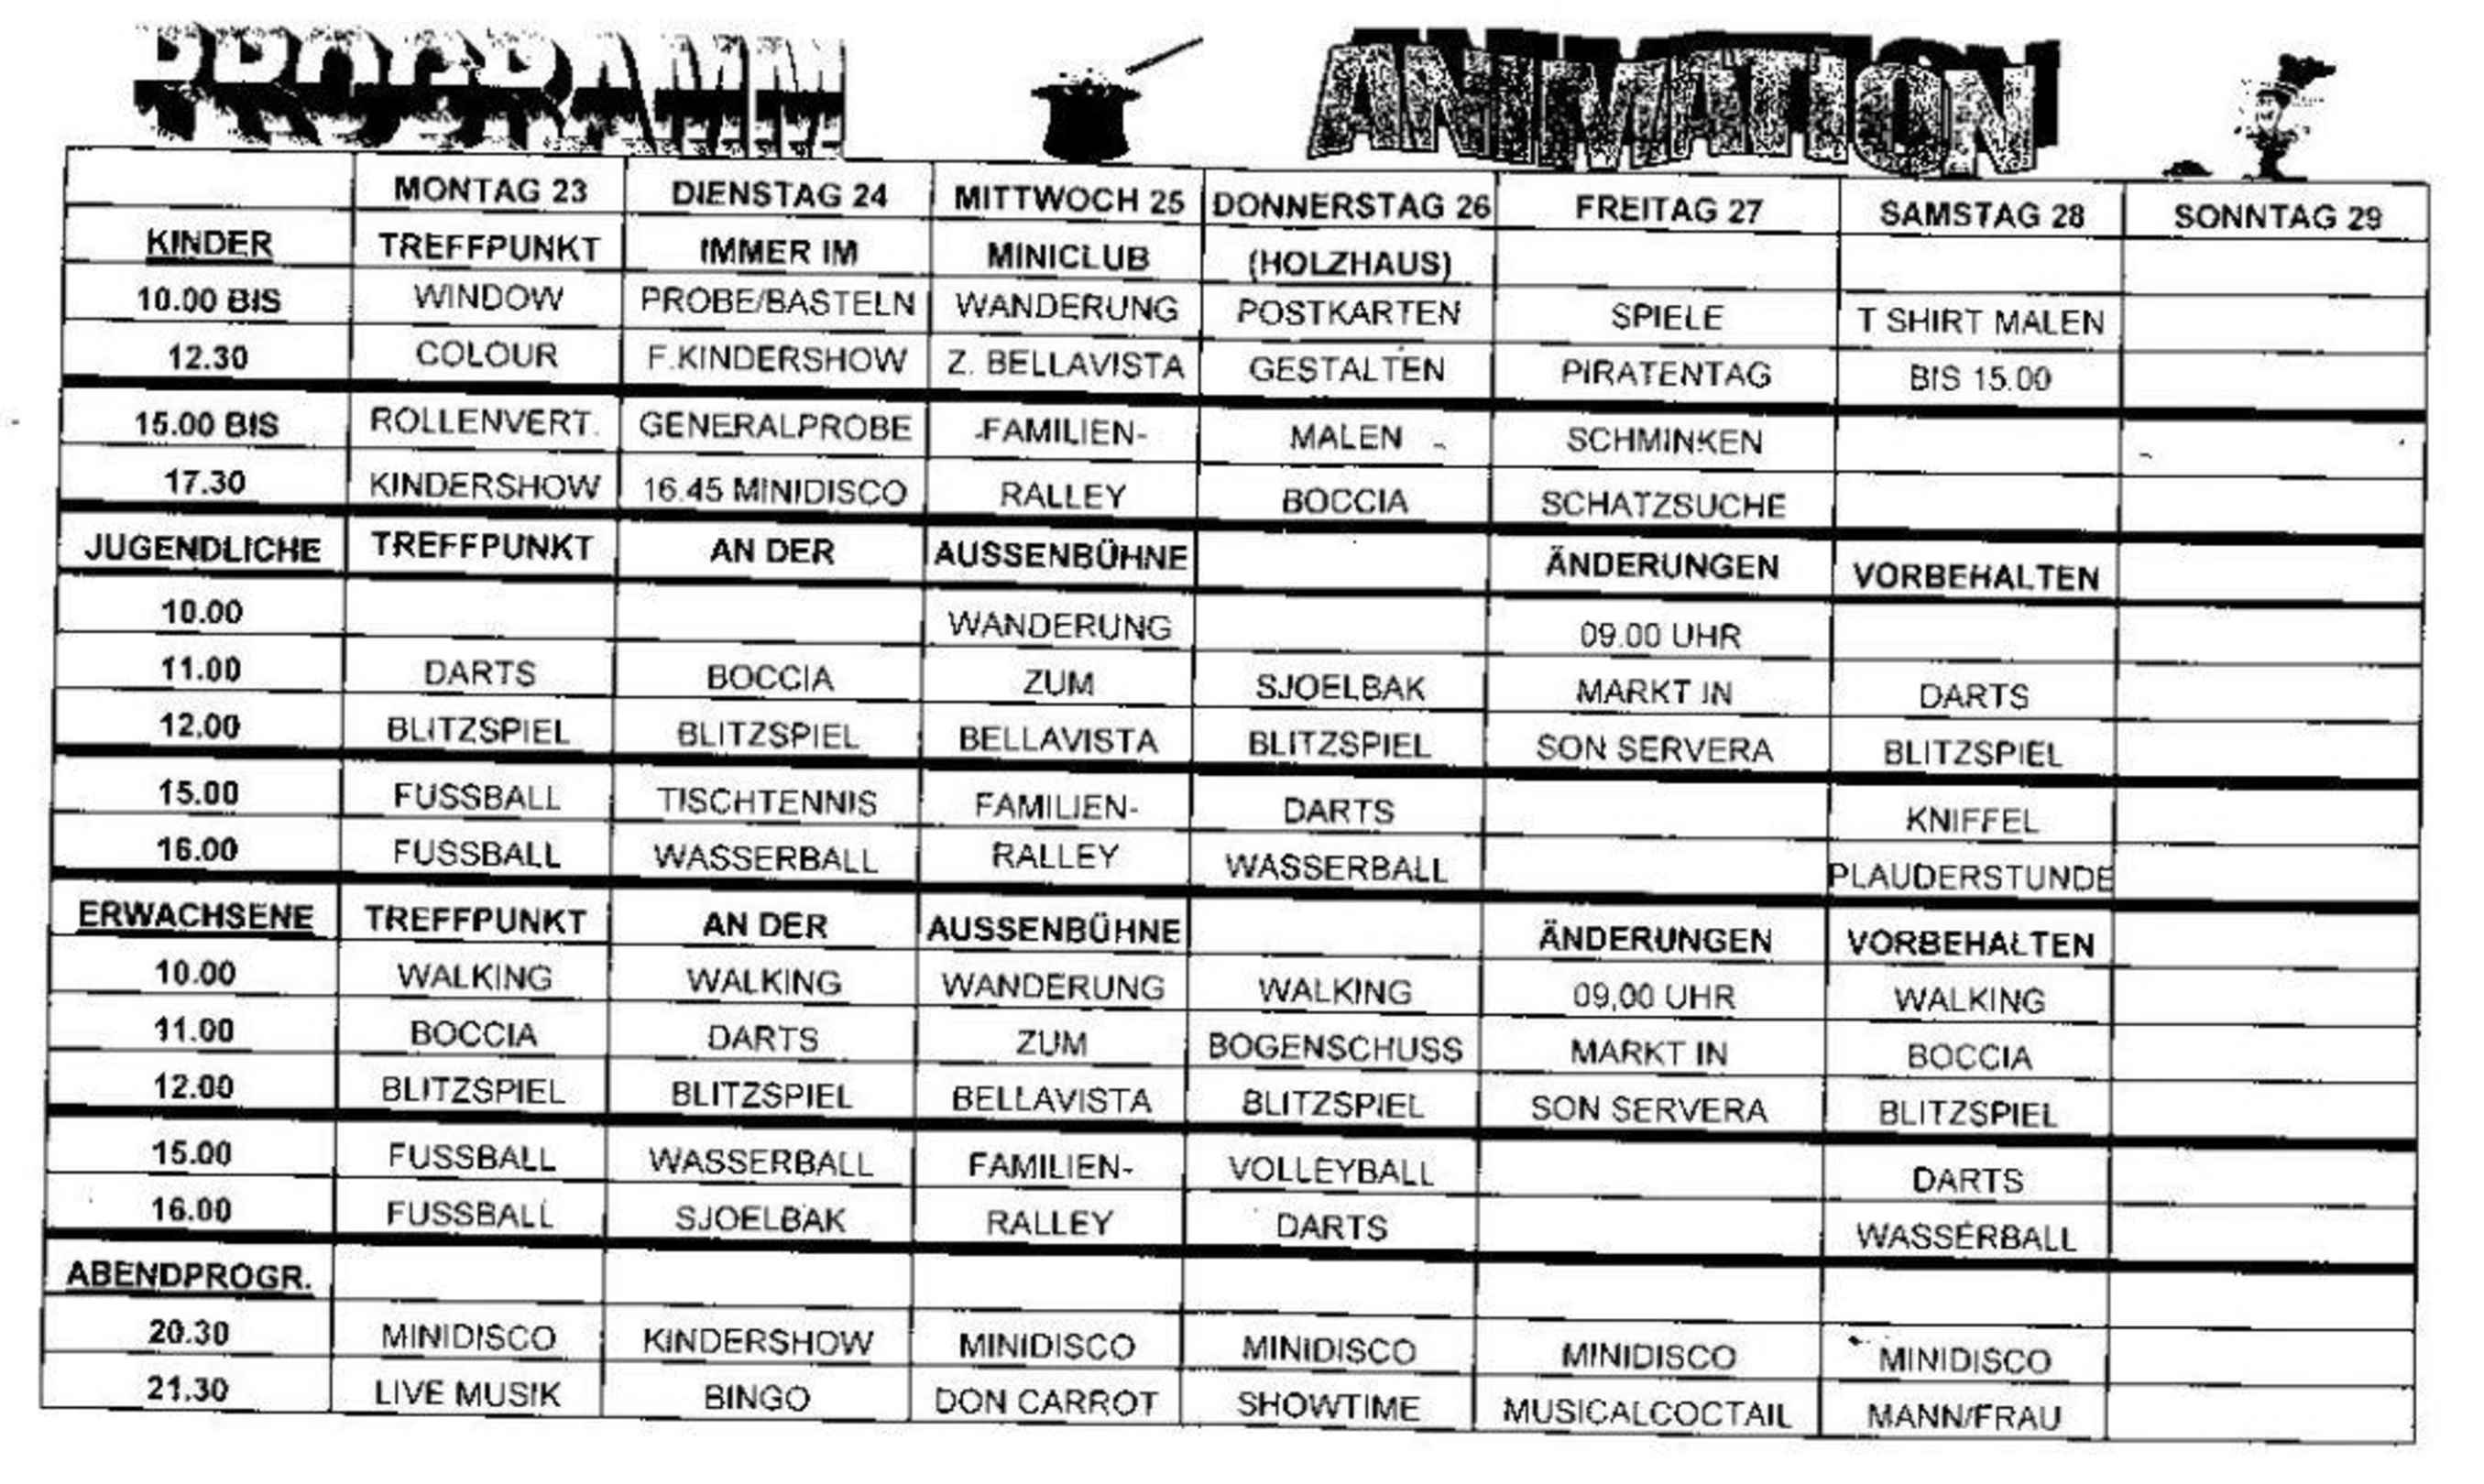 PROGRAMM ANIMATION
MONTAG 23 DIENSTAG 24 MITTWOCH 25 DONNERSTAG 26 FREITAG 27 SAMSTAG 28 SONNTAG 29
KINDER TREFFPUNKT IMMER IM MINICLUB (HOLZHAUS)
10.00 BIS WINDOW PROBE/BASTELN WANDERUNG POSTKARTEN SPIELE T SHIRT MALEN
12.30 COLOUR F.KINDERSHOW Z. BELLAVISTA GESTALTEN PIRATENTAG BIS 15.00
15.00 BIS ROLLENVERT. GENERALPROBE -FAMILIEN- MALEN SCHMINKEN
17.30 KINDERSHOW 16.45 MINIDISCO RALLEY BOCCIA SCHATZSUCHE
JUGENDLICHE TREFFPUNKT AN DER AUSSENBÜHNE ÄNDERUNGEN VORBEHALTEN
10.00 WANDERUNG 09.00 UHR
11.00 DARTS BOCCIA ZUM SJOELBAK MARKT IN DARTS
12.00 BLITZSPIEL BLITZSPIEL BELLAVISTA BLITZSPIEL SON SERVERA BLITZSPIEL
15.00 FUSSBALL TISCHTENNIS FAMILIEN- DARTS KNIFFEL
16.00 FUSSBALL WASSERBALL RALLEY WASSERBALL PLAUDERSTUNDE
ERWACHSENE TREFFPUNKT AN DER AUSSENBÜHNE ÄNDERUNGEN VORBEHALTEN
10.00 WALKING WALKING WANDERUNG WALKING 09,00 UHR WALKING
11.00 BOCCIA DARTS ZUM BOGENSCHUSS MARKT IN BOCCIA
12.00 BLITZSPIEL BLITZSPIEL BELLAVISTA BLITZSPIEL SON SERVERA BLITZSPIEL
15.00 FUSSBALL WASSERBALL FAMILIEN- VOLLEYBALL DARTS
16.00 FUSSBALL SJOELBAK RALLEY DARTS WASSERBALL
ABENDPROGR.
20.30 MINIDISCO KINDERSHOW MINIDISCO MINIDISCO MINIDISCO MINIDISCO
21.30 LIVE MUSIK BINGO DON CARROT SHOWTIME MUSICALCOCTAIL MANN/FRAU